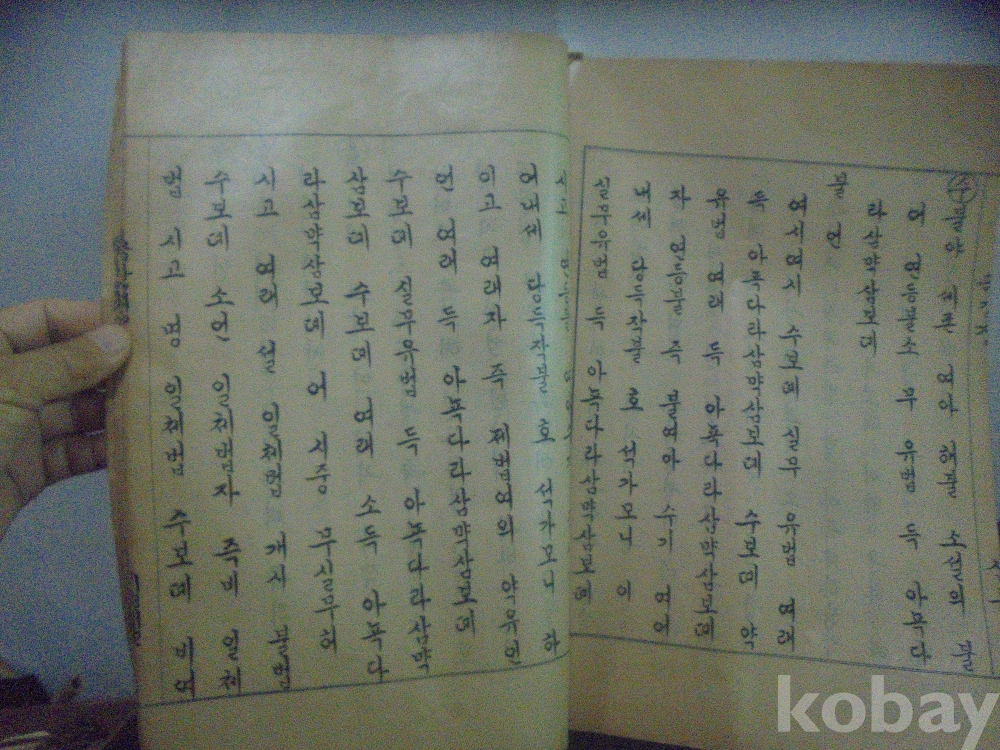 불야 세존 여아 해불 소설의 불
어 연등불소 무 유법 득 아뇩다
라삼먁삼보리
불 언
여시여시 수보리 실무 유법 여래
득 아뇩다라삼먁삼보리 수보리 약
유법 여래 득 아뇩다라삼먁삼보리
자 연등불 즉 불여아 수기 여어
내세 당득작불 호 석가모니 이
실무유법 득 아뇩다라삼먁삼보리
어내세 당득작불 호 석가모니 하
이고 여래자 즉 제법여의 약유인
언 여래 득 아뇩다라삼먁삼보리
수보리 실무유법 득 아뇩다라삼먁
삼보리 수보리 여래 소득 아뇩다
라삼먁삼보리 어 시중 무실무허
시고 여래 설 일체법 개시 불법
수보리 소언 일체법자 즉비 일체
법 시고 명 일체법 수보리 비여
kobay